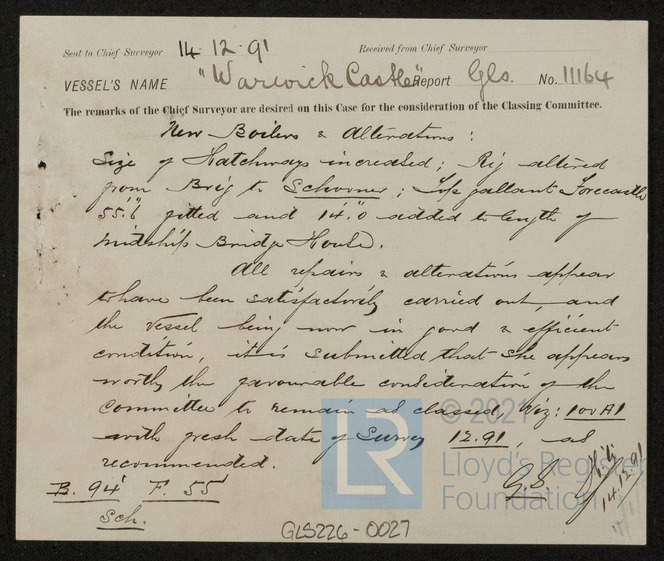 Sent to Chief Surveyor 14.12.91 Received from Chief Surveyor
VESSEL'S NAME "Warwick Castle" Report Gls. No. 11164
The remarks of the Chief Surveyor are desired on this Case for the consideration of the Classing Committee.
New Boilers & Alterations:
Size of Hatchways increased; Rig altered
from Brig to Schooner; Top gallant Forecastle
55'.6" fitted and 14'.0" added to length of
midship Bridge House.
All repairs & alterations appear
to have been satisfactorily carried out, and
the Vessel being now in good & efficient
condition, it is submitted that she appears
worthy the favourable consideration of the
Committee to remain as classed, viz: 100A1
with fresh date of Survey 12.91, as
recommended.
B. 94' F. 55'
Sch.
G.S.
14.12.91
GLS226-0027
LR
© 2021
Lloyd's Register
Foundation